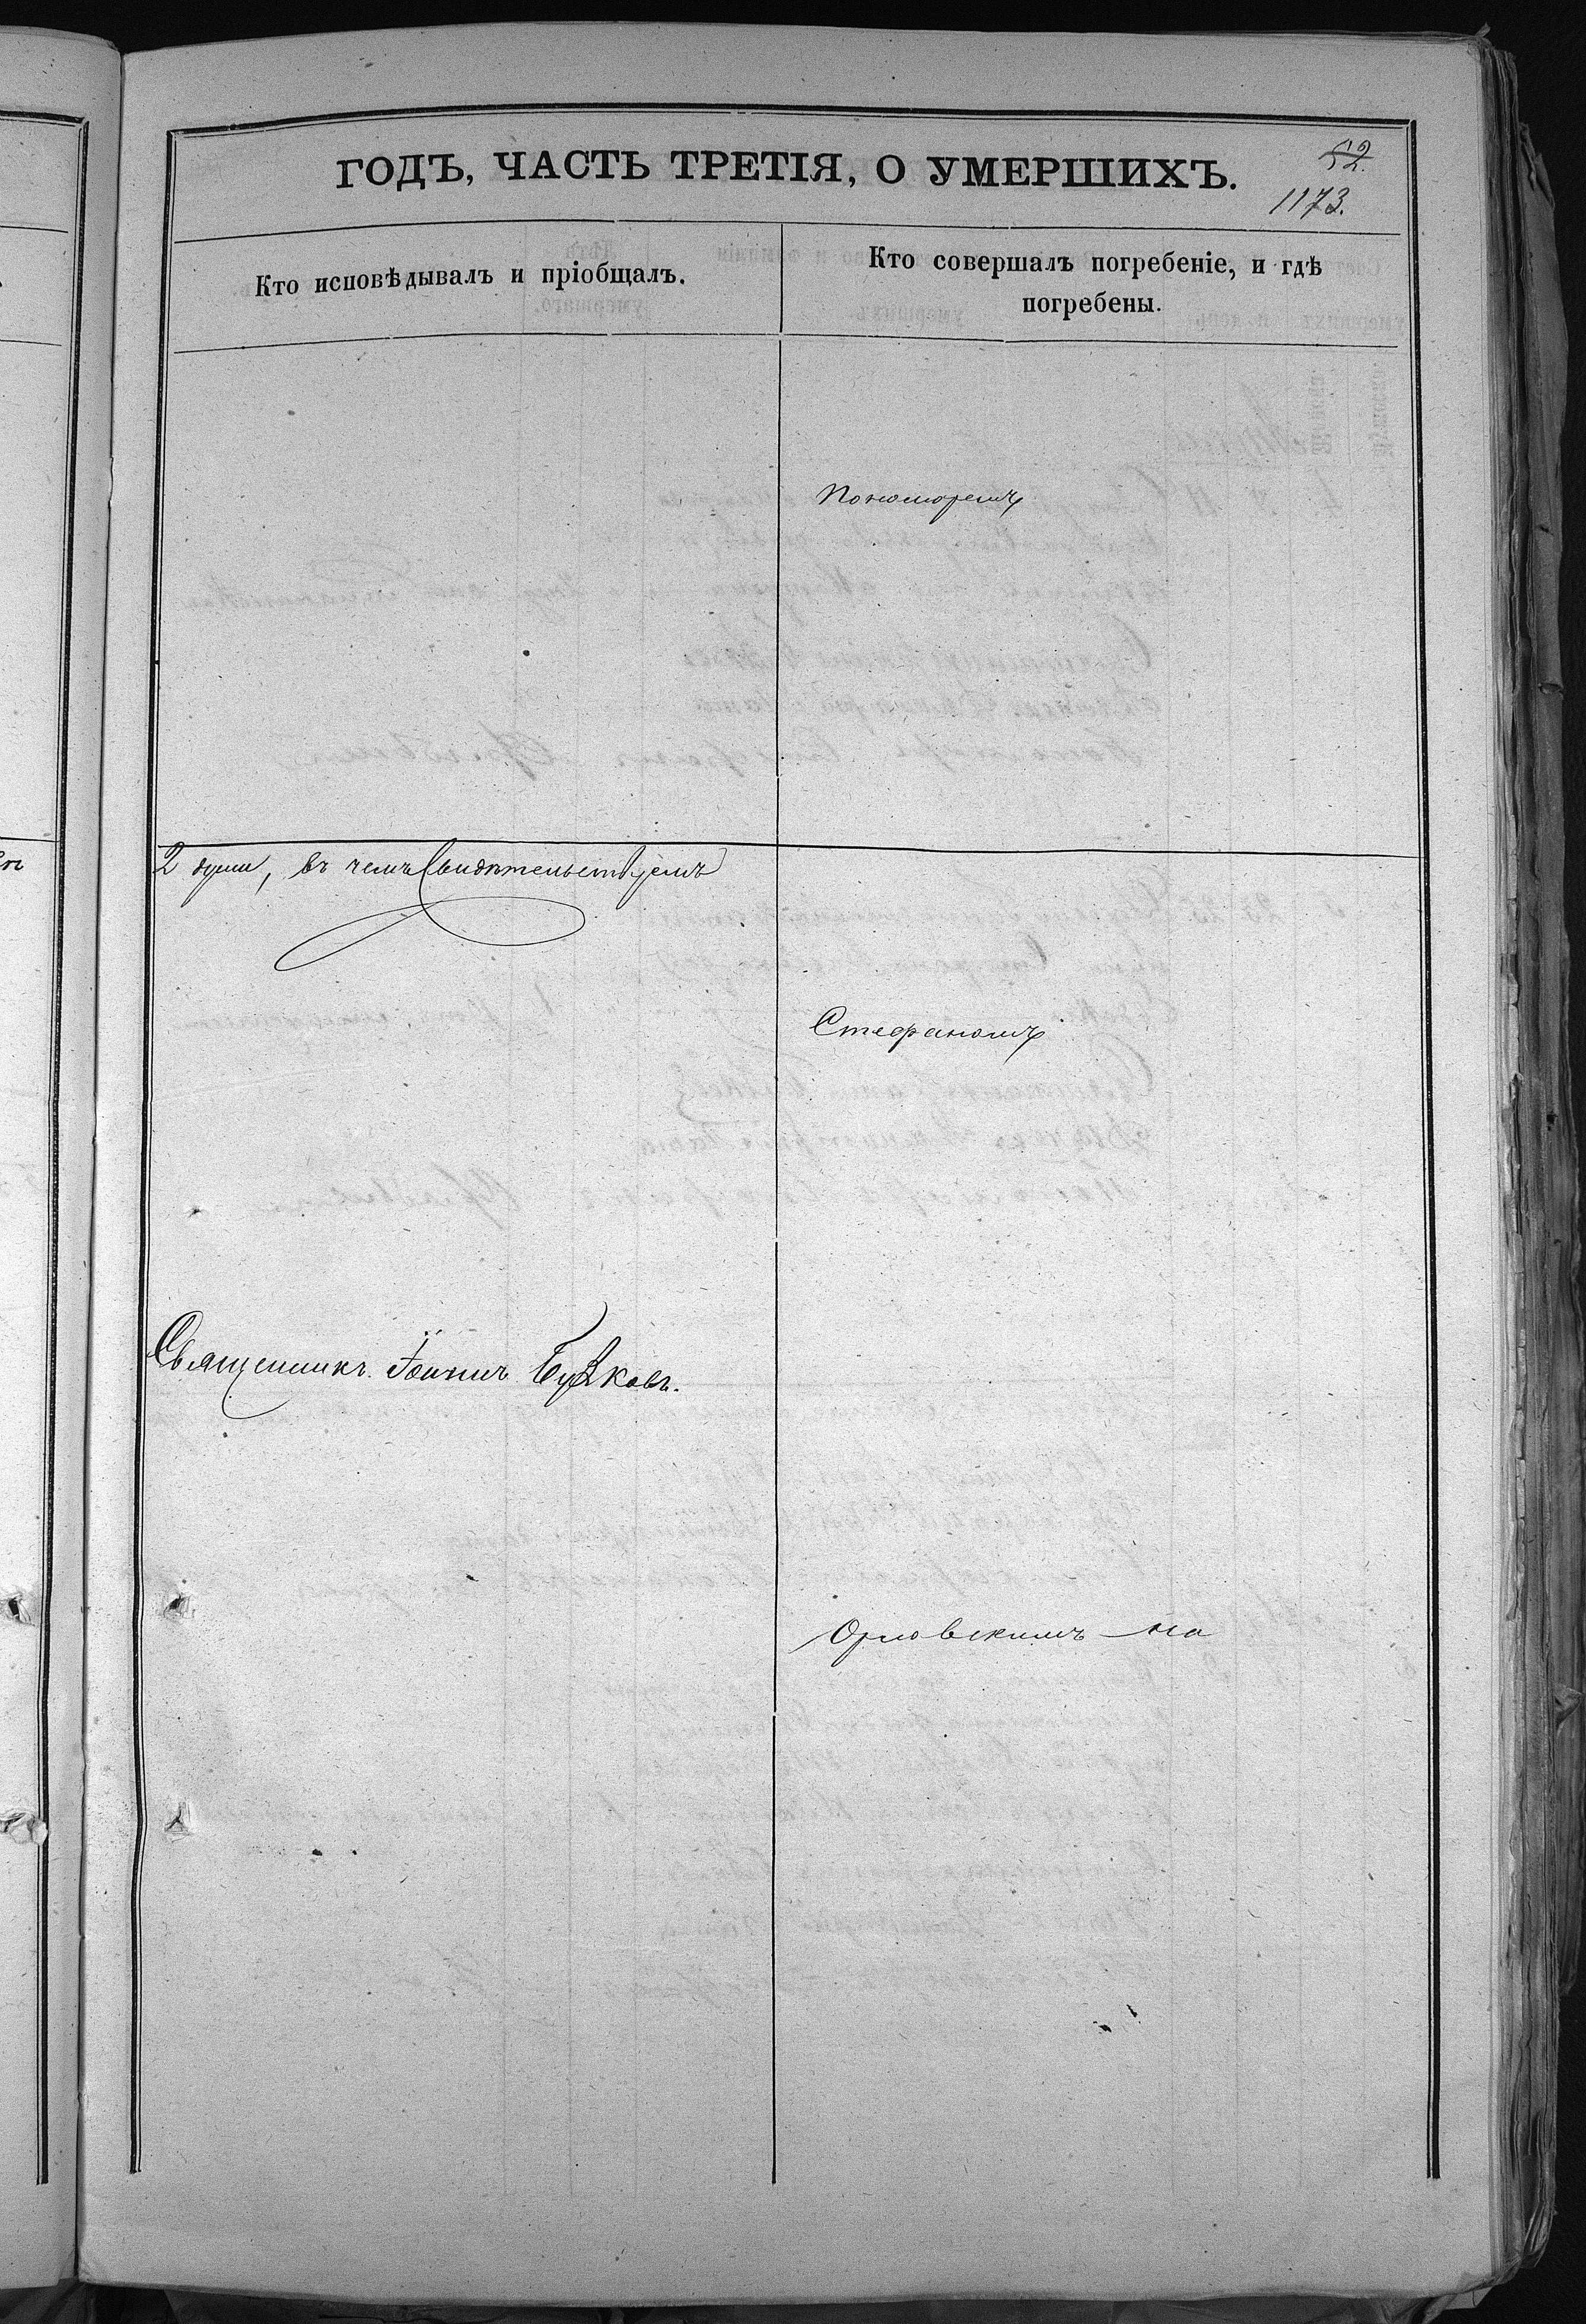 ГОДЪ, ЧАСТЬ ТРЕТІЯ, О УМЕРШИХЪ.
52.
1173.
Кто исповѣдывалъ и пріобщалъ.
Кто совершалъ погребеніе, и гдѣ
погребены.
Пономоремъ
2 души, въ чемъ свидѣтельствуемъ
Стефаномъ
Священникъ Іоаннъ
Орловскимъ на